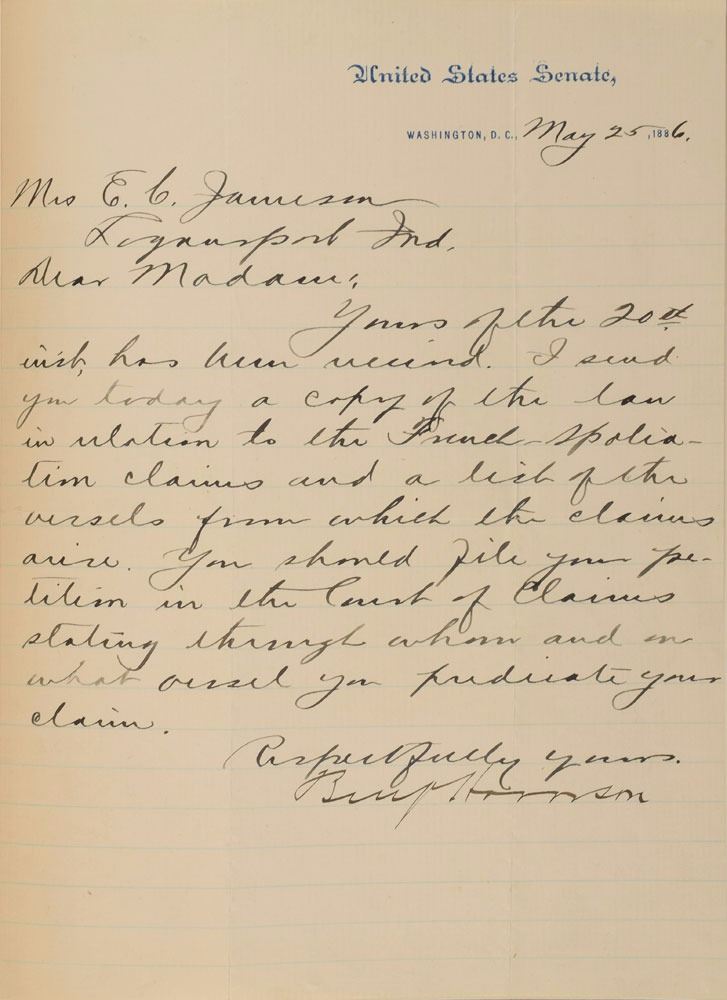 United States Senate,
WASHINGTON, D. C., May 25, 1886.
Mrs E. C. Jameson
Logansport Ind.
Dear Madam:,
Yours of the 20th
inst, has been received. I send
you today a copy of the law
in relation to the French-Spolia-
tion claims and a list of the
vessels from which the claims
arise. You should file your pe-
tition in the Court of Claims
stating through whom and on
what vessel you predicate your
claim.
Respectfully yours.
Benj Harrison